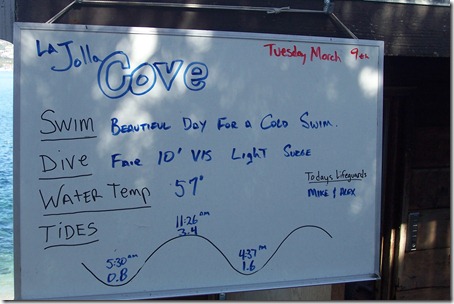 La Jolla Cove
Tuesday March 9th
Swim Beautiful Day For a Cold Swim.
Dive Fair 10' Vis Light Surge
Water Temp 57°
Todays Lifeguards
Mike & Alex
Tides
11:26 am
3.4
5:30 am
0.8
4:37 pm
1.6